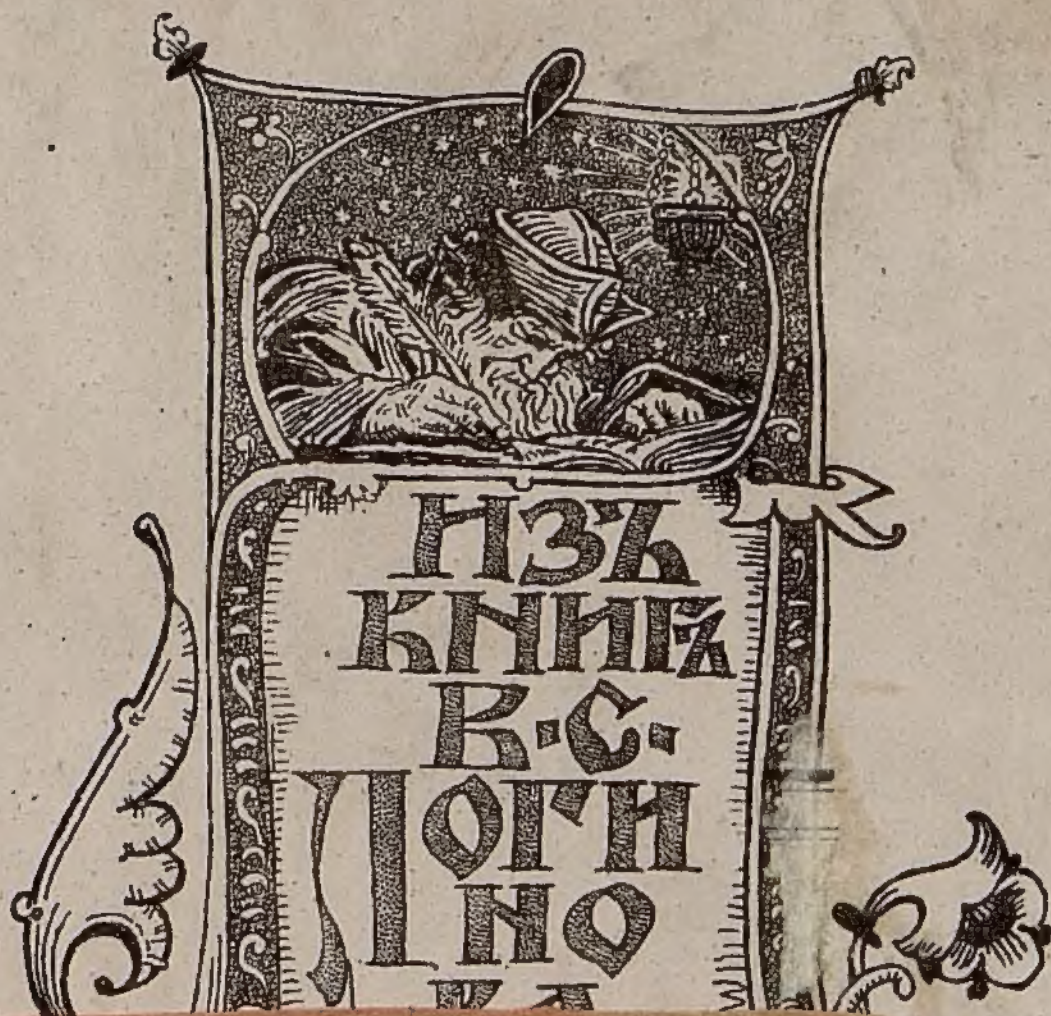 ИЗЪ
КНИГЪ
В·С·
ЛОГИ
НО
ВА